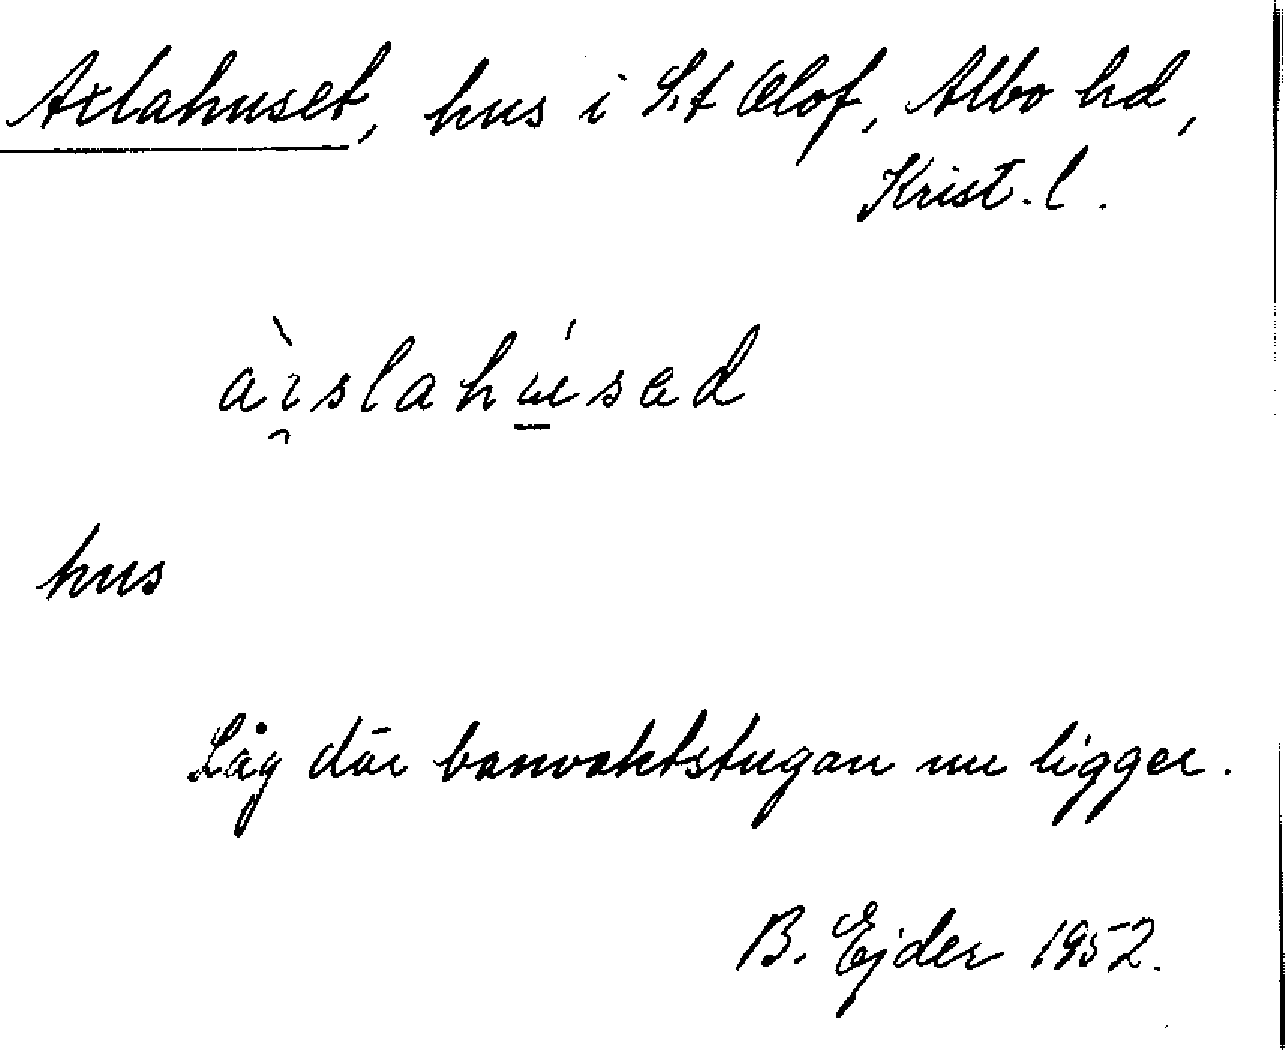 Axlahuset, hus i S:t Olof, Albo hd,
Krist. l.
hus
Låg där banvaktstugan nu ligger.
B. Ejder 1952.